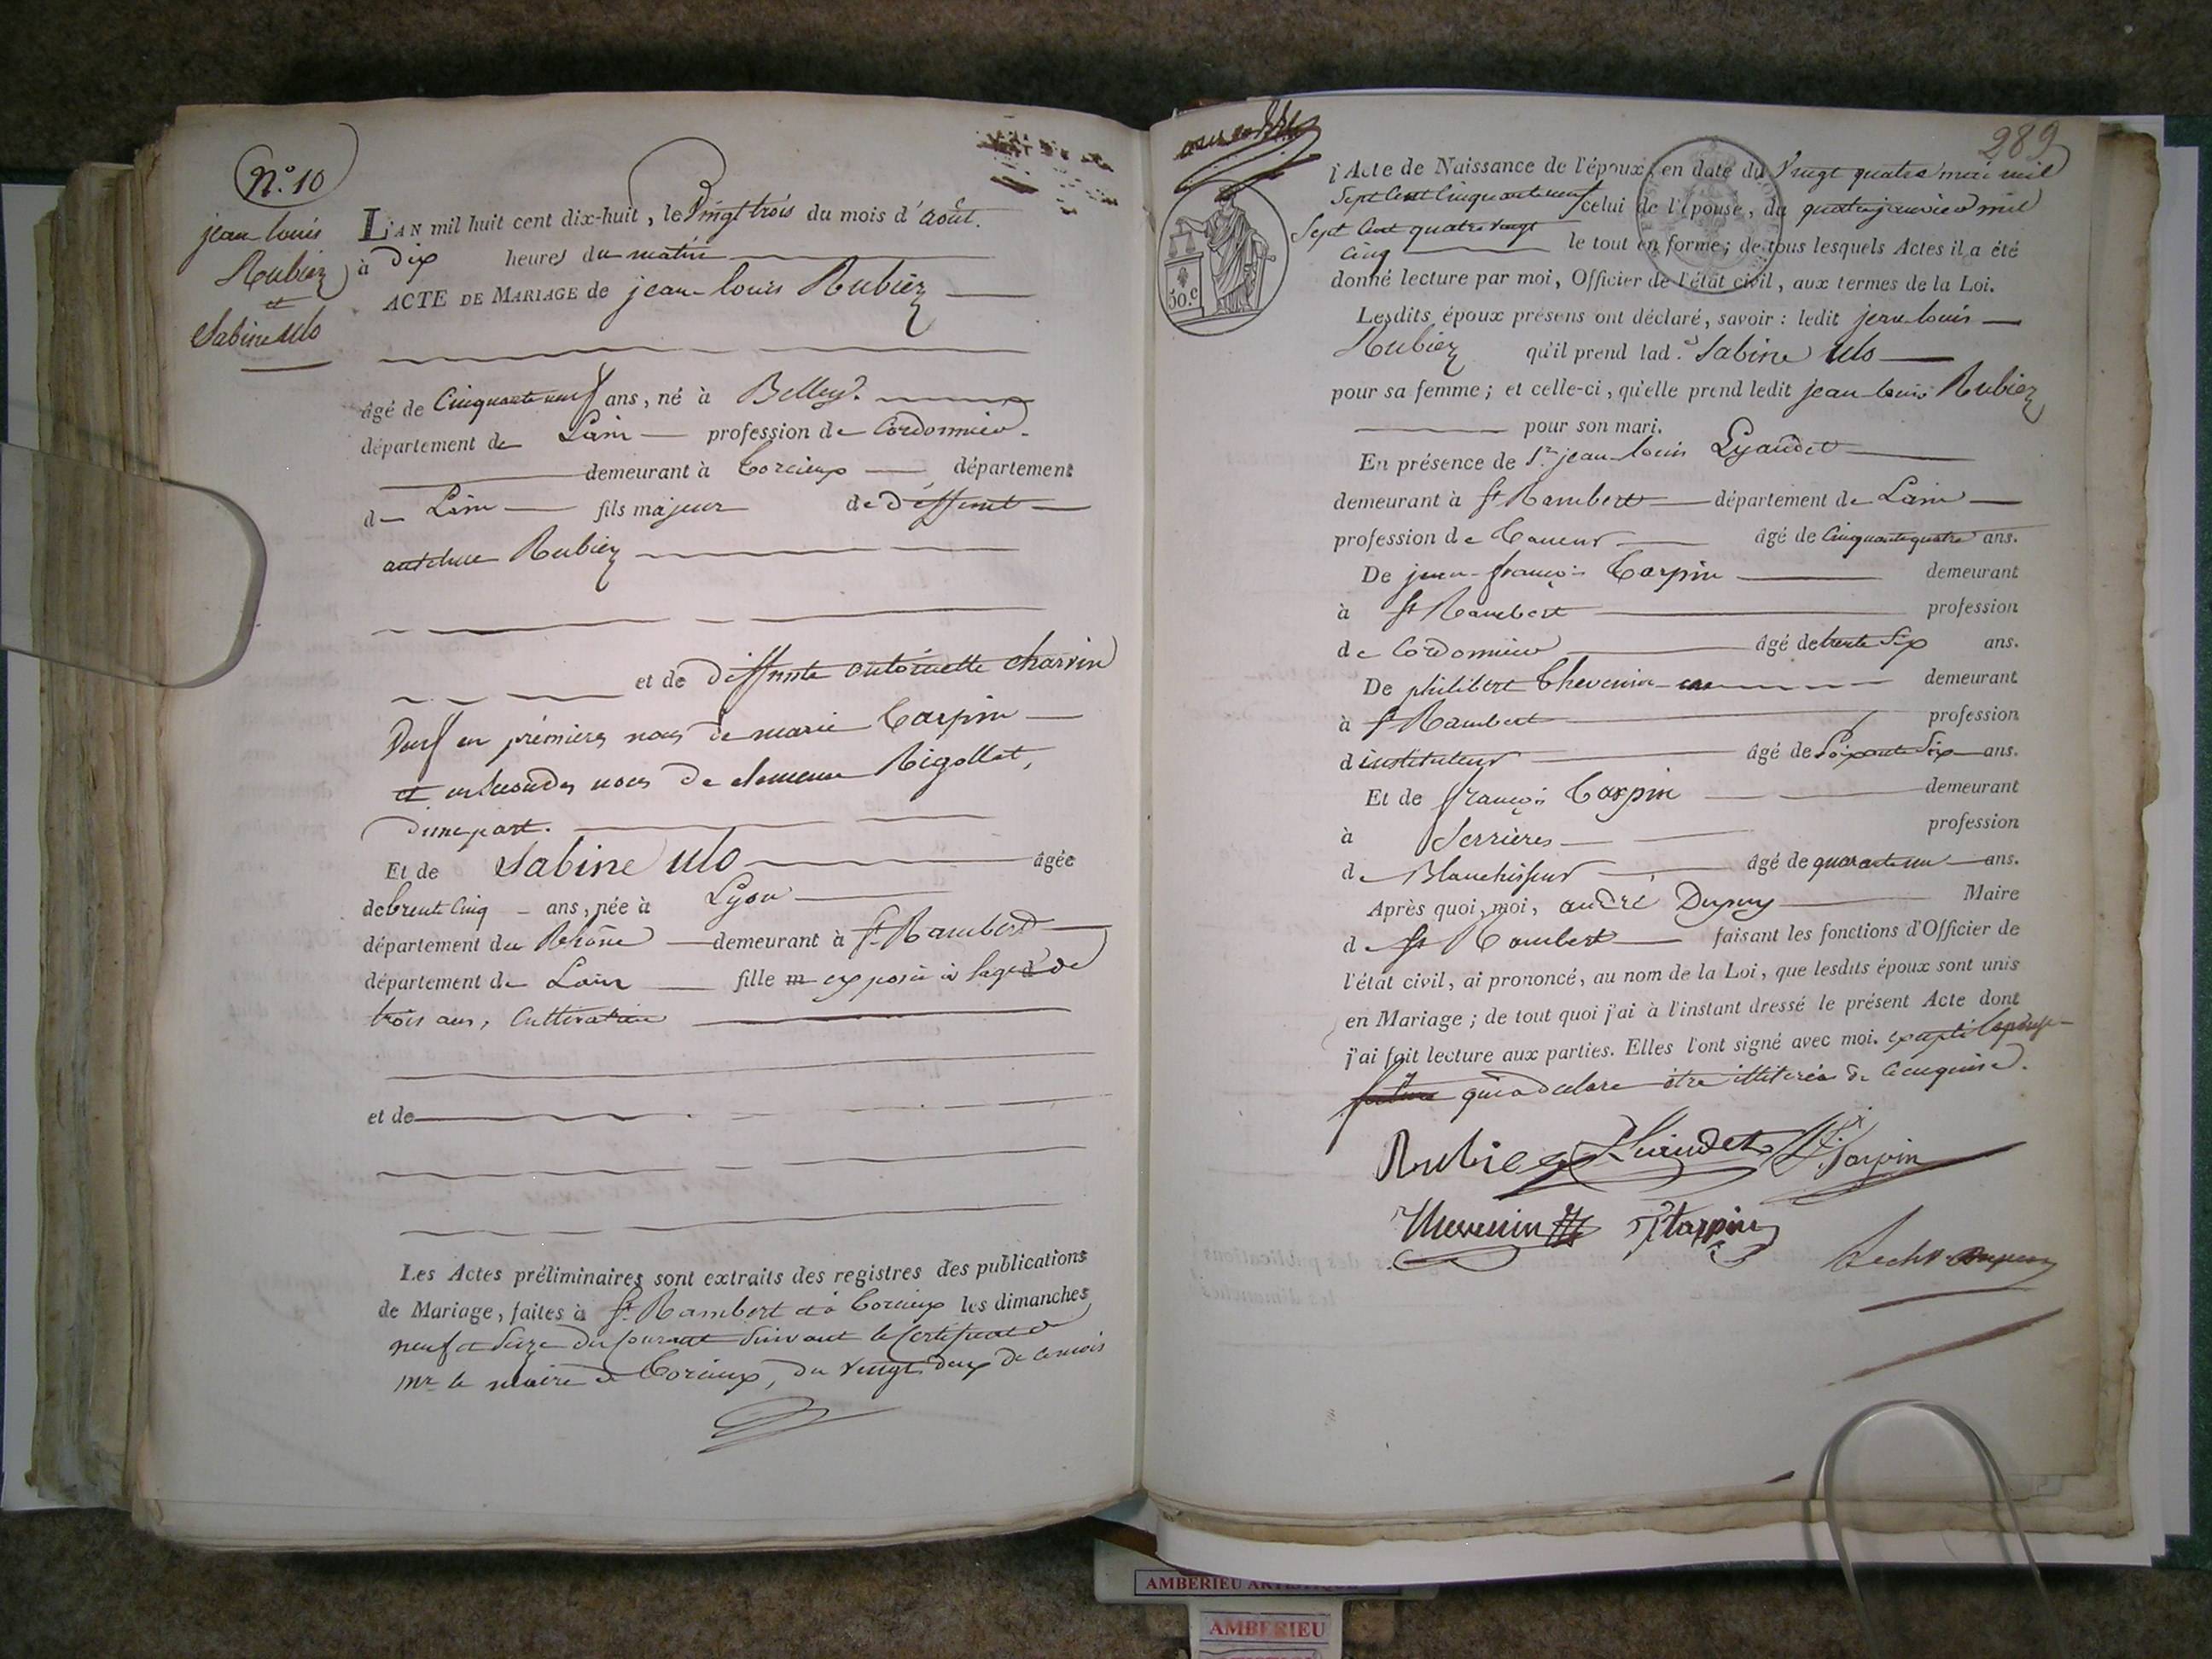 N.° 10
jean louis
Rubiez
et
Sabine Ulo
L'AN mil huit cent dix-huit, le Vingt trois du mois d'août.
à dix heures du matin
ACTE DE MARIAGE de jean-louis Rubiez
âgé de Cinquante neuf ans, né à Belley.
département de Lain profession de Cordonnier
demeurant à Torcieux département
de Lain fils majeur de déffunt
anthelme Rubiez
et de déffunte antoinette charvin
Veuf en prémières noces de marie Tarpin
et en secondes noces de clemence Rigollet,
d'une part.
Et de Sabine Ulo âgée
de trente Cinq ans, née à Lyon
département du Rhône demeurant à St Rambert
département de Lain fille exposée à lage de
trois ans, Cultivatrice
et de
Les Actes préliminaires sont extraits des registres des publications
de Mariage, faites à St Rambert et à Torcieux les dimanches
neuf et Seize du Courant Suivant le Certificat de
mr le maire de Torcieux, du Vingt deux de ce mois
289
l'Acte de Naissance de l'époux, en date du Vingt quatre mai mil
Sept Cent Cinquante neuf celui de l'épouse, du quatre janvier mil
Sept Cent quatre vingt
Cinq le tout en forme; de tous lesquels Actes il a été
donné lecture par moi, Officier de l'état civil, aux termes de la Loi.
50.c
Lesdits époux présens ont déclaré, savoir : ledit jean louis
Rubiez qu'il prend lad.e Sabine Ulo
pour sa femme; et celle-ci, qu'elle prend ledit jean-louis Rubiez
pour son mari.
En présence de Sr jean-louis Lyaudet
demeurant à St Rambert département de Lain
profession de Tanneur âgé de Cinquante quatre ans.
De jean-françois Tarpin demeurant
à St Rambert profession
de Cordonnier âgé de trente Six ans.
De philibert Thevenin demeurant
à St Rambert profession
d instituteur âgé de Soixante Six ans.
Et de françois Tarpin demeurant
à Serrières profession
de Blanchisseur âgé de quarante un ans.
Après quoi, moi, andré Dupuy Maire
de St Rambert faisant les fonctions d'Officier de
l'état civil, ai prononcé, au nom de la Loi, que lesdits époux sont unis
en Mariage; de tout quoi j'ai à l'instant dressé le présent Acte dont
j'ai fait lecture aux parties. Elles l'ont signé avec moi. excepté l'épouse
future qui a déclaré être illitérée de ce enquise.
Rubiez Liaudet Tarpin
Thevenin Tarpin
Dupuy
AMBERIEU ARTISTIQUE
AMBERIEU